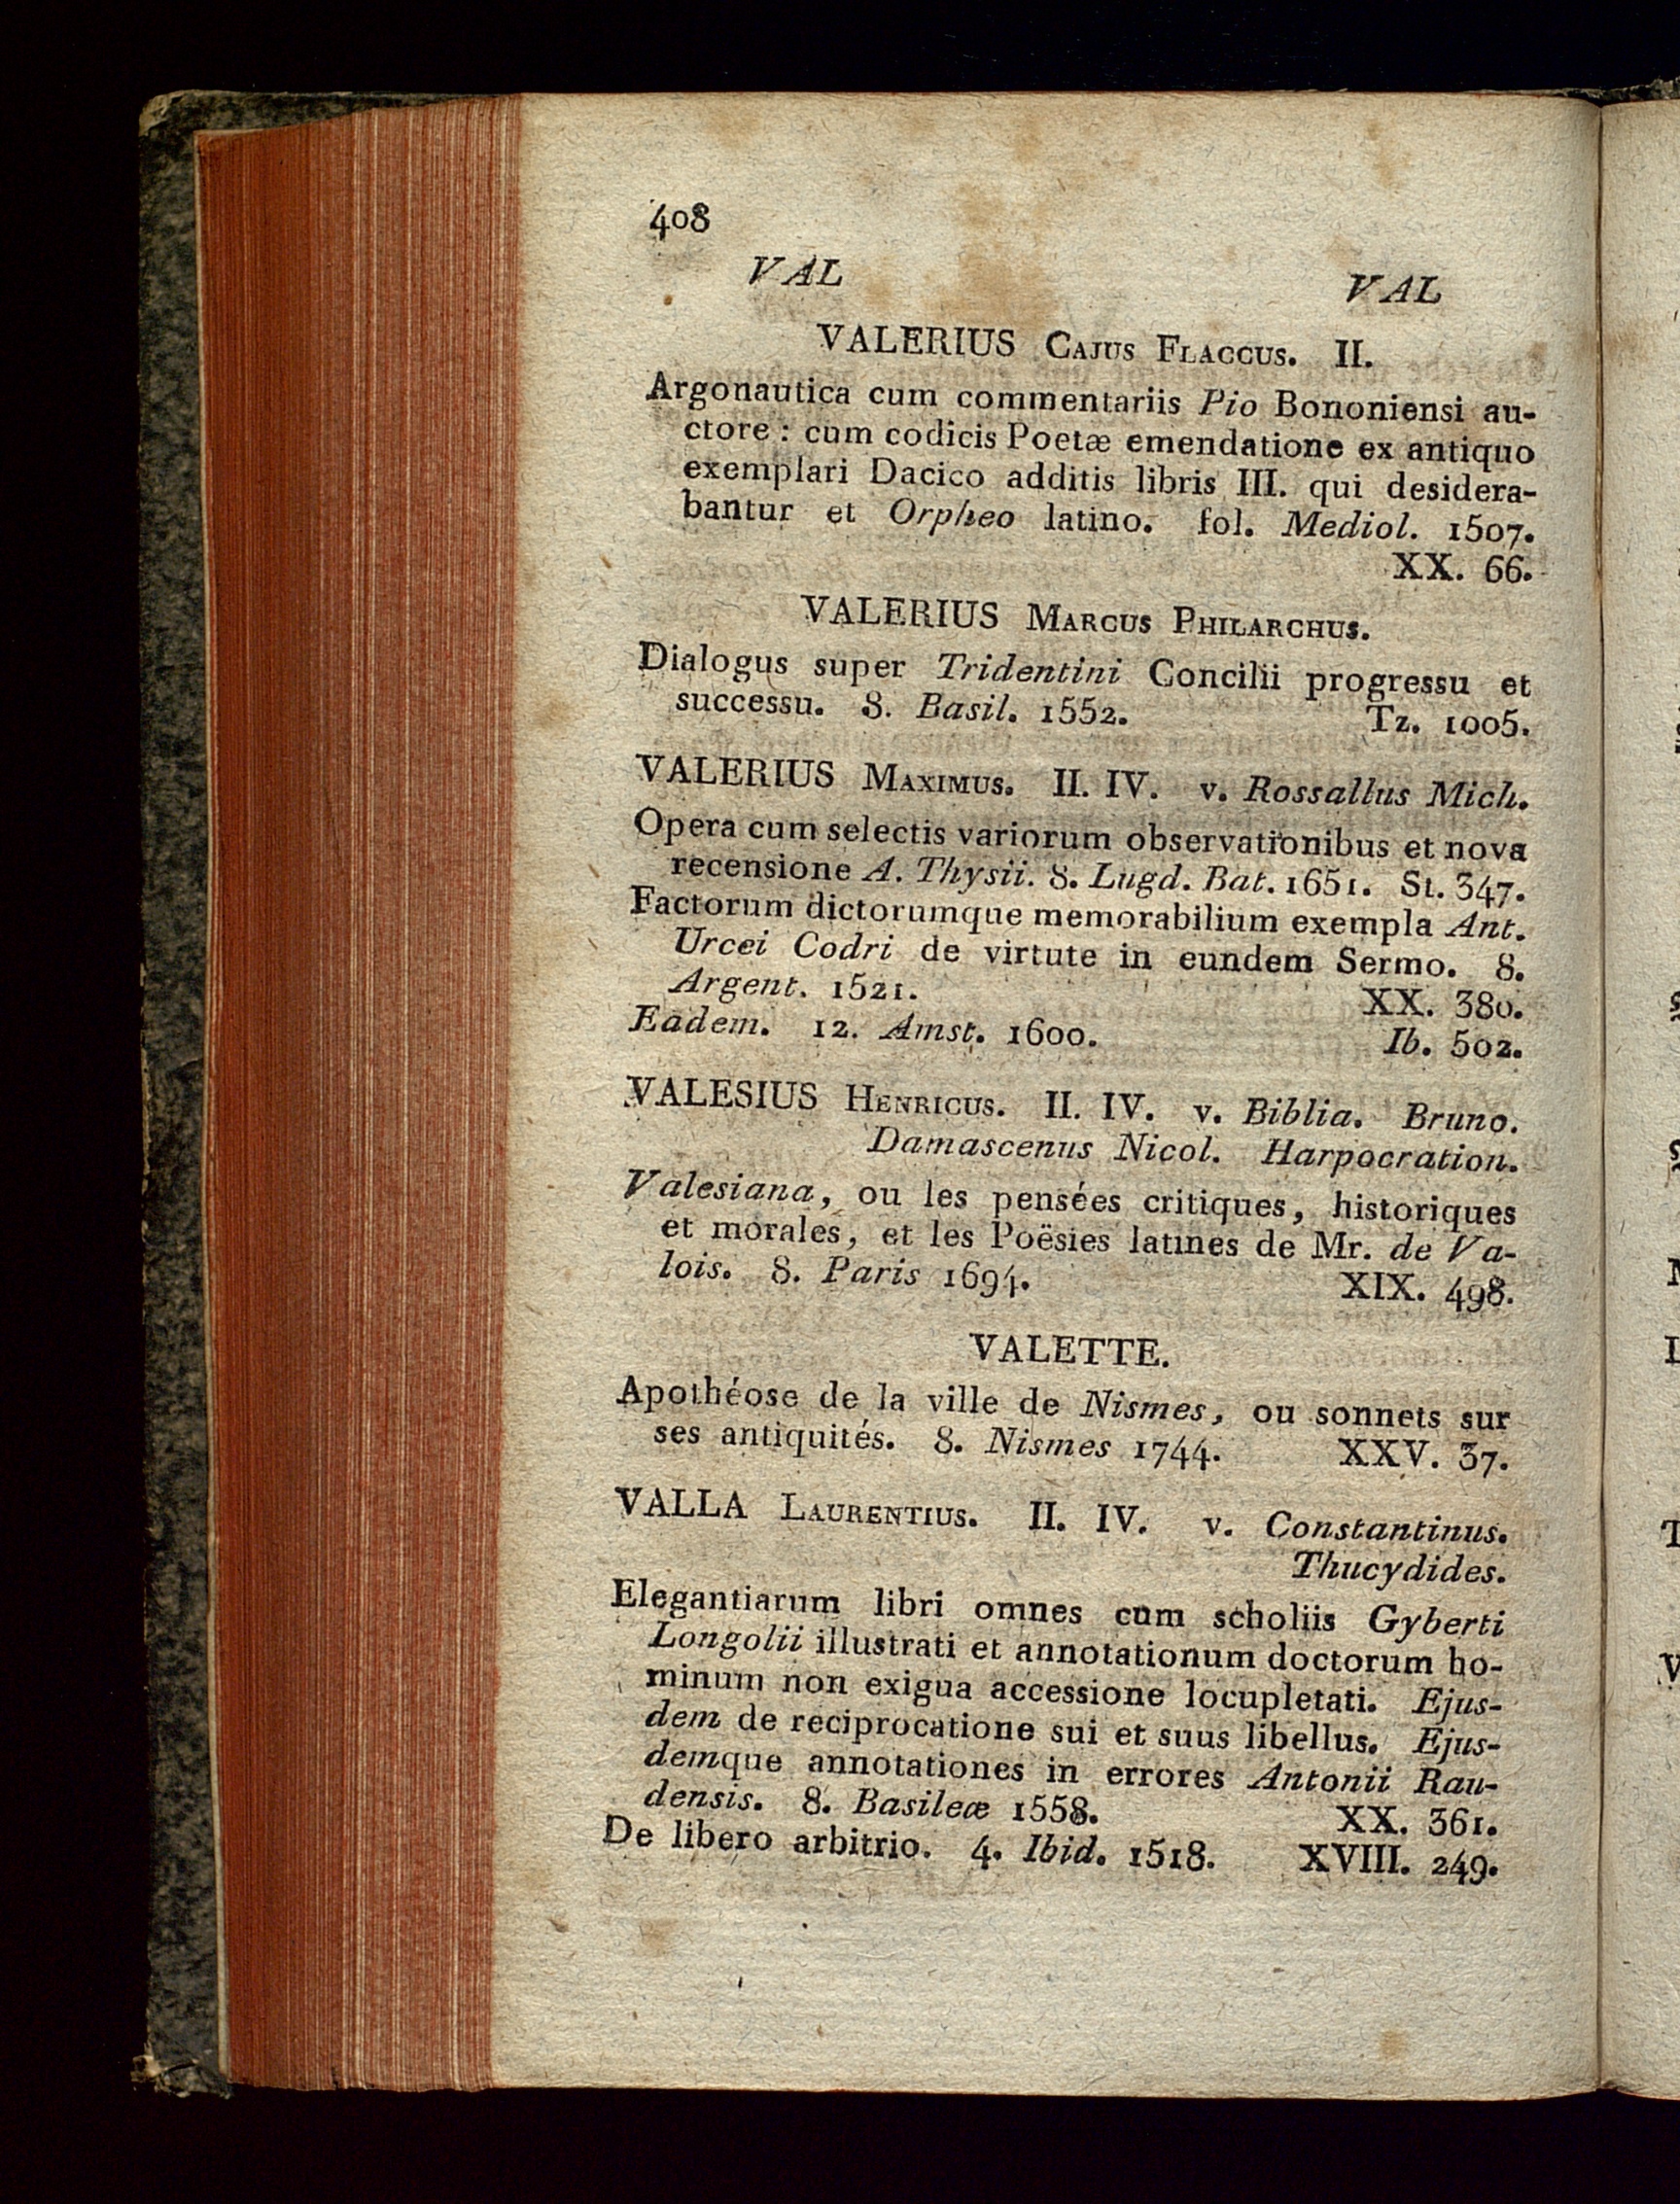 408
VAL VAL
VALERIUS CAJUS FLACCUS. II.
Argonautica cum commentariis Pio Bononiensi au-
ctore: cum codicis Poetæ emendatione ex antiquo
exemplari Dacico additis libris III. qui desidera-
bantur et Orpheo latino. fol. Mediol. 1507.
XX. 66.
VALERIUS MARCUS PHILARCHUS.
Dialogus super Tridentini Concilii progressu et
successu. 8. Basil. 1552. Tz. 1005.
VALERIUS MAXIMUS. II. IV. v. Rossallus Mich.
Opera cum selectis variorum observationibus et nova
recensione A. Thysii. 8. Lugd. Bat. 1651. St. 347.
Factorum dictorumque memorabilium exempla Ant.
Urcei Codri de virtute in eundem Sermo. 8.
Argent. 1521. XX. 380.
Eadem. 12. Amst. 1600. Ib. 502.
VALESIUS HENRICUS. II. IV. v. Biblia. Bruno.
Damascenus Nicol. Harpocration.
Valesiana, ou les pensées critiques, historiques
et morales, et les Poësies latines de Mr. de Va-
lois. 8. Paris 1694. XIX. 498.
VALETTE.
Apothéose de la ville de Nismes, ou sonnets sur
ses antiquités. 8. Nismes 1744. XXV. 37.
VALLA LAURENTIUS. II. IV. v. Constantinus.
Thucydides.
Elegantiarum libri omnes cum scholiis Gyberti
Longolii illustrati et annotationum doctorum ho-
minum non exigua accessione locupletati. Ejus-
dem de reciprocatione sui et suus libellus. Ejus-
demque annotationes in errores Antonii Rau-
densis. 8. Basileæ 1558. XX. 361.
De libero arbitrio. 4. Ibid. 1518. XVIII. 249.